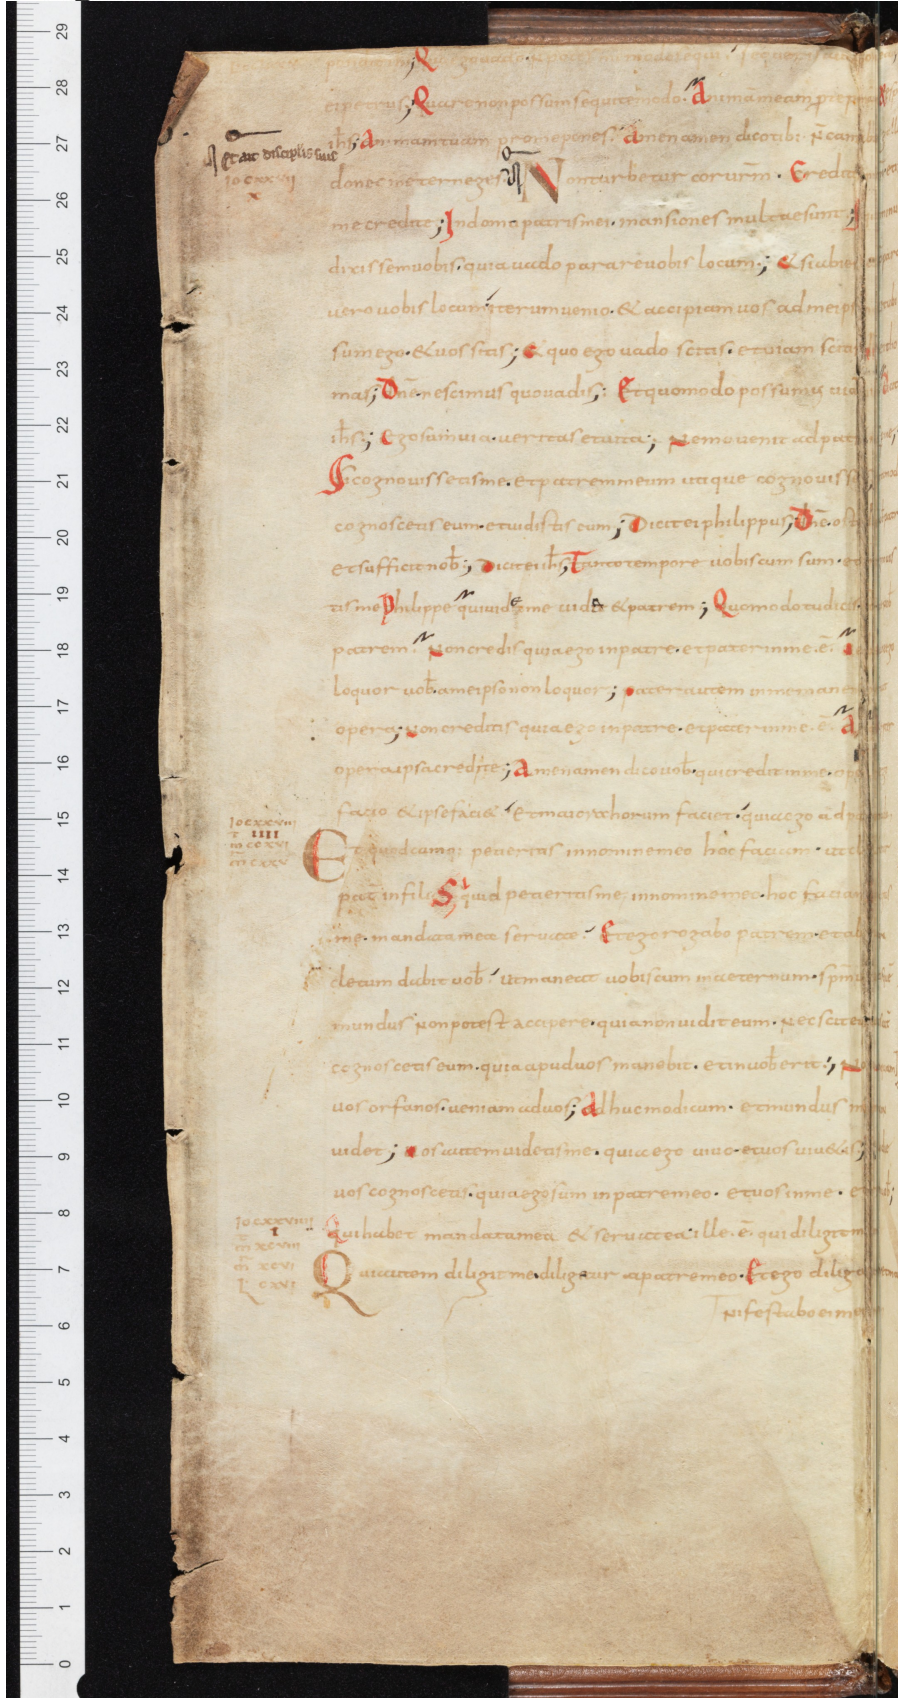 ei petrus; Quare non possum te sequi modo. Animam meam pro te
ihs; Animam tuam pro me pones. Amen amen dico tibi. Ñ can
Et ait discipulis suis
donec me ter neges. Non turbetur cor urm̄. Credit
io cxxvii
x
me credite; In domo patris mei. mansiones multae sunt;
dixissem uobis. quia uado parare uobis locum; & si abie
uero uobis locum iterum uenio. & accipiam uos ad me ips
sum ego. & uos sitis; & quo ego uado scitis. et uiam scitis
mas; Dn̄e nescimus quo uadis; Et quomodo possumus uia
ih̄s; Ego sum uia. ueritas et uita; Nemo uenit ad pat
Si cognouissetis me. et patrem meum utique cognouisse
cognoscetis eum. et uidistis eum; Dicit ei philippus; Dn̄e. oste
et sufficit nob̄; Dicit ei ih̄s; Tanto tempore uobiscum sum. et
tis me Philippe qui uidet me uidet & patrem; Quomodo tu dicis
patrem. Non credis quia ego in patre. et pater in me. ē.
loquor uob̄. a me ipso non loquor; Pater autem in me mane
opera; Non creditis quia ego in patre. et pater in me. ē. A
opera ipsa credite; Amen amen dico uob̄. qui credit in me. op
facio & ipse faci& Et maiora horum faciet. quia ego ad pa
io cxxviii
iiii
m ccxvi
m cxxv
Et quodcumq; petieritis in nomine meo hoc faciam. ut
pat̄ in filio Si quid petieritis me in nomine meo. hoc faciam
me. mandata mea seruate. Et ego rogabo patrem. et al
cletum dabit uob̄ ut maneat uobiscum in aeternum. spm̄
mundus Non potest accipere. quia non uidit eum. Nec scit e
cognoscetis eum. quia apud uos manebit. et in uob̄ erit; No
uos orfanos. ueniam ad uos; Adhuc modicum. et mundus m
uidet; Vos autem uidetis me. quia ego uiuo. et uos uiu&is;
uos cognoscetis. quia ego sum in patre meo. et uos in me. e
io cxxviiii
i
m xcviii
m xcvi
L cxvi
Qui habet mandata mea & seruat ea ille. ē. qui diligit m
Qui autem diligit me. diligetur a patre meo. Et ego dilig
nifestabo ei me